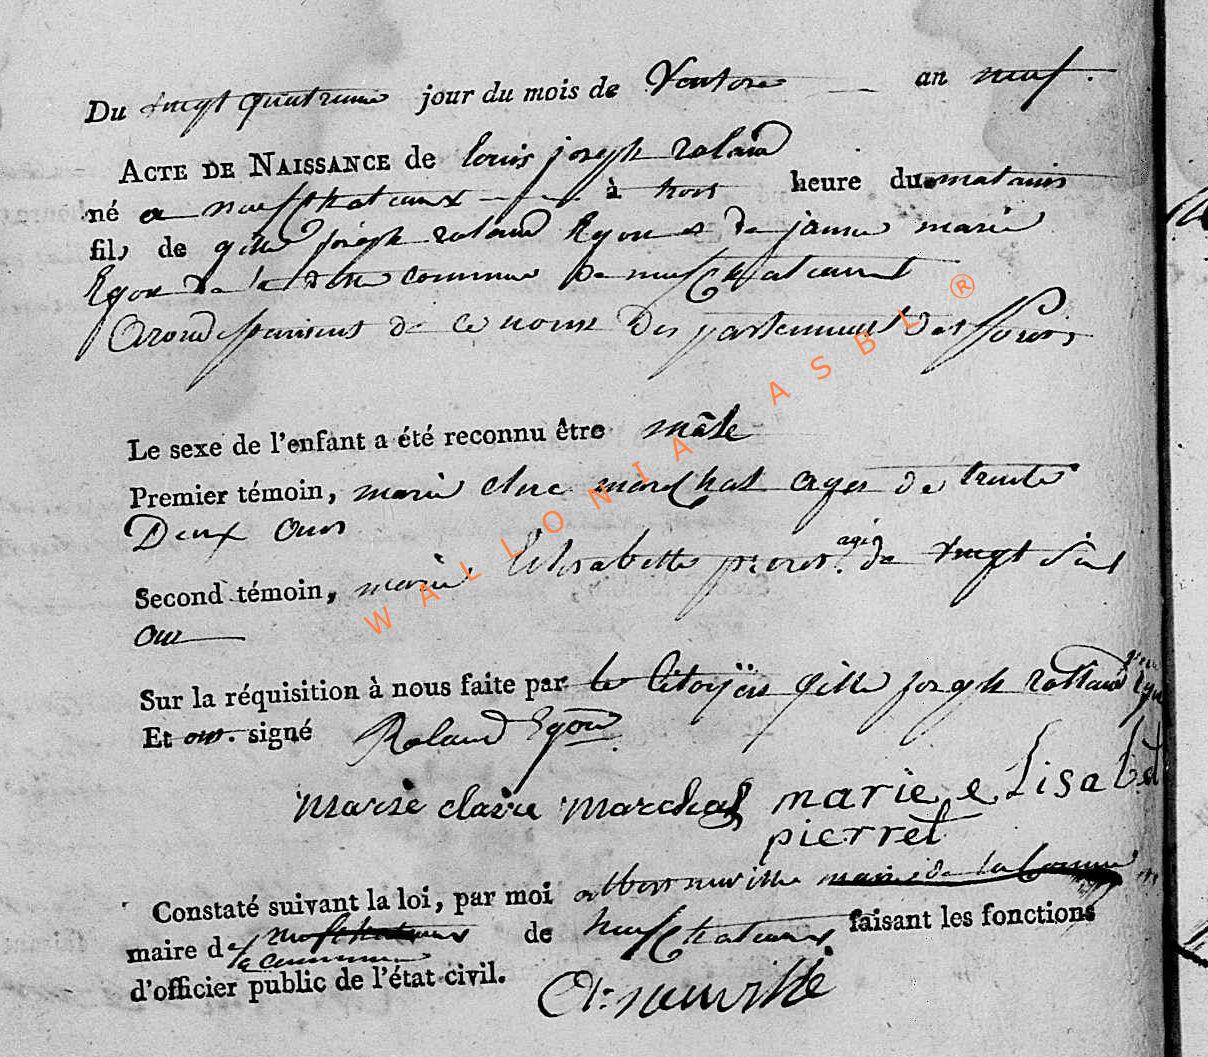 Du vingt quatrieme jour du mois de Ventose an neuf.
ACTE DE NAISSANCE de louis joseph roland
né a neufchateaux à trois heure du matains
fils de gille joseph roland Egon et de janne marie
Egon de la ditte commune de neufchateaux
Arondissement de ce nome des partement des forets
Le sexe de l'enfant a été reconnu être mâle
Premier témoin, marie clere marchal agee de trente
Deux ans
Second témoin, marie Elisabette pieret agée de vingt sint
ans
Sur la réquisition à nous faite par le Citoÿen gille joseph rolland
Et ont signé Roland Egon
marie claire marchal marie elisabet
pierret
Constaté suivant la loi, par moi albert neuville maire de la Commune
maire de neufchateaux la commune de neufchateaux faisant les fonctions
d'officier public de l'état civil. A: neuville
WALLONIA ASBL ®